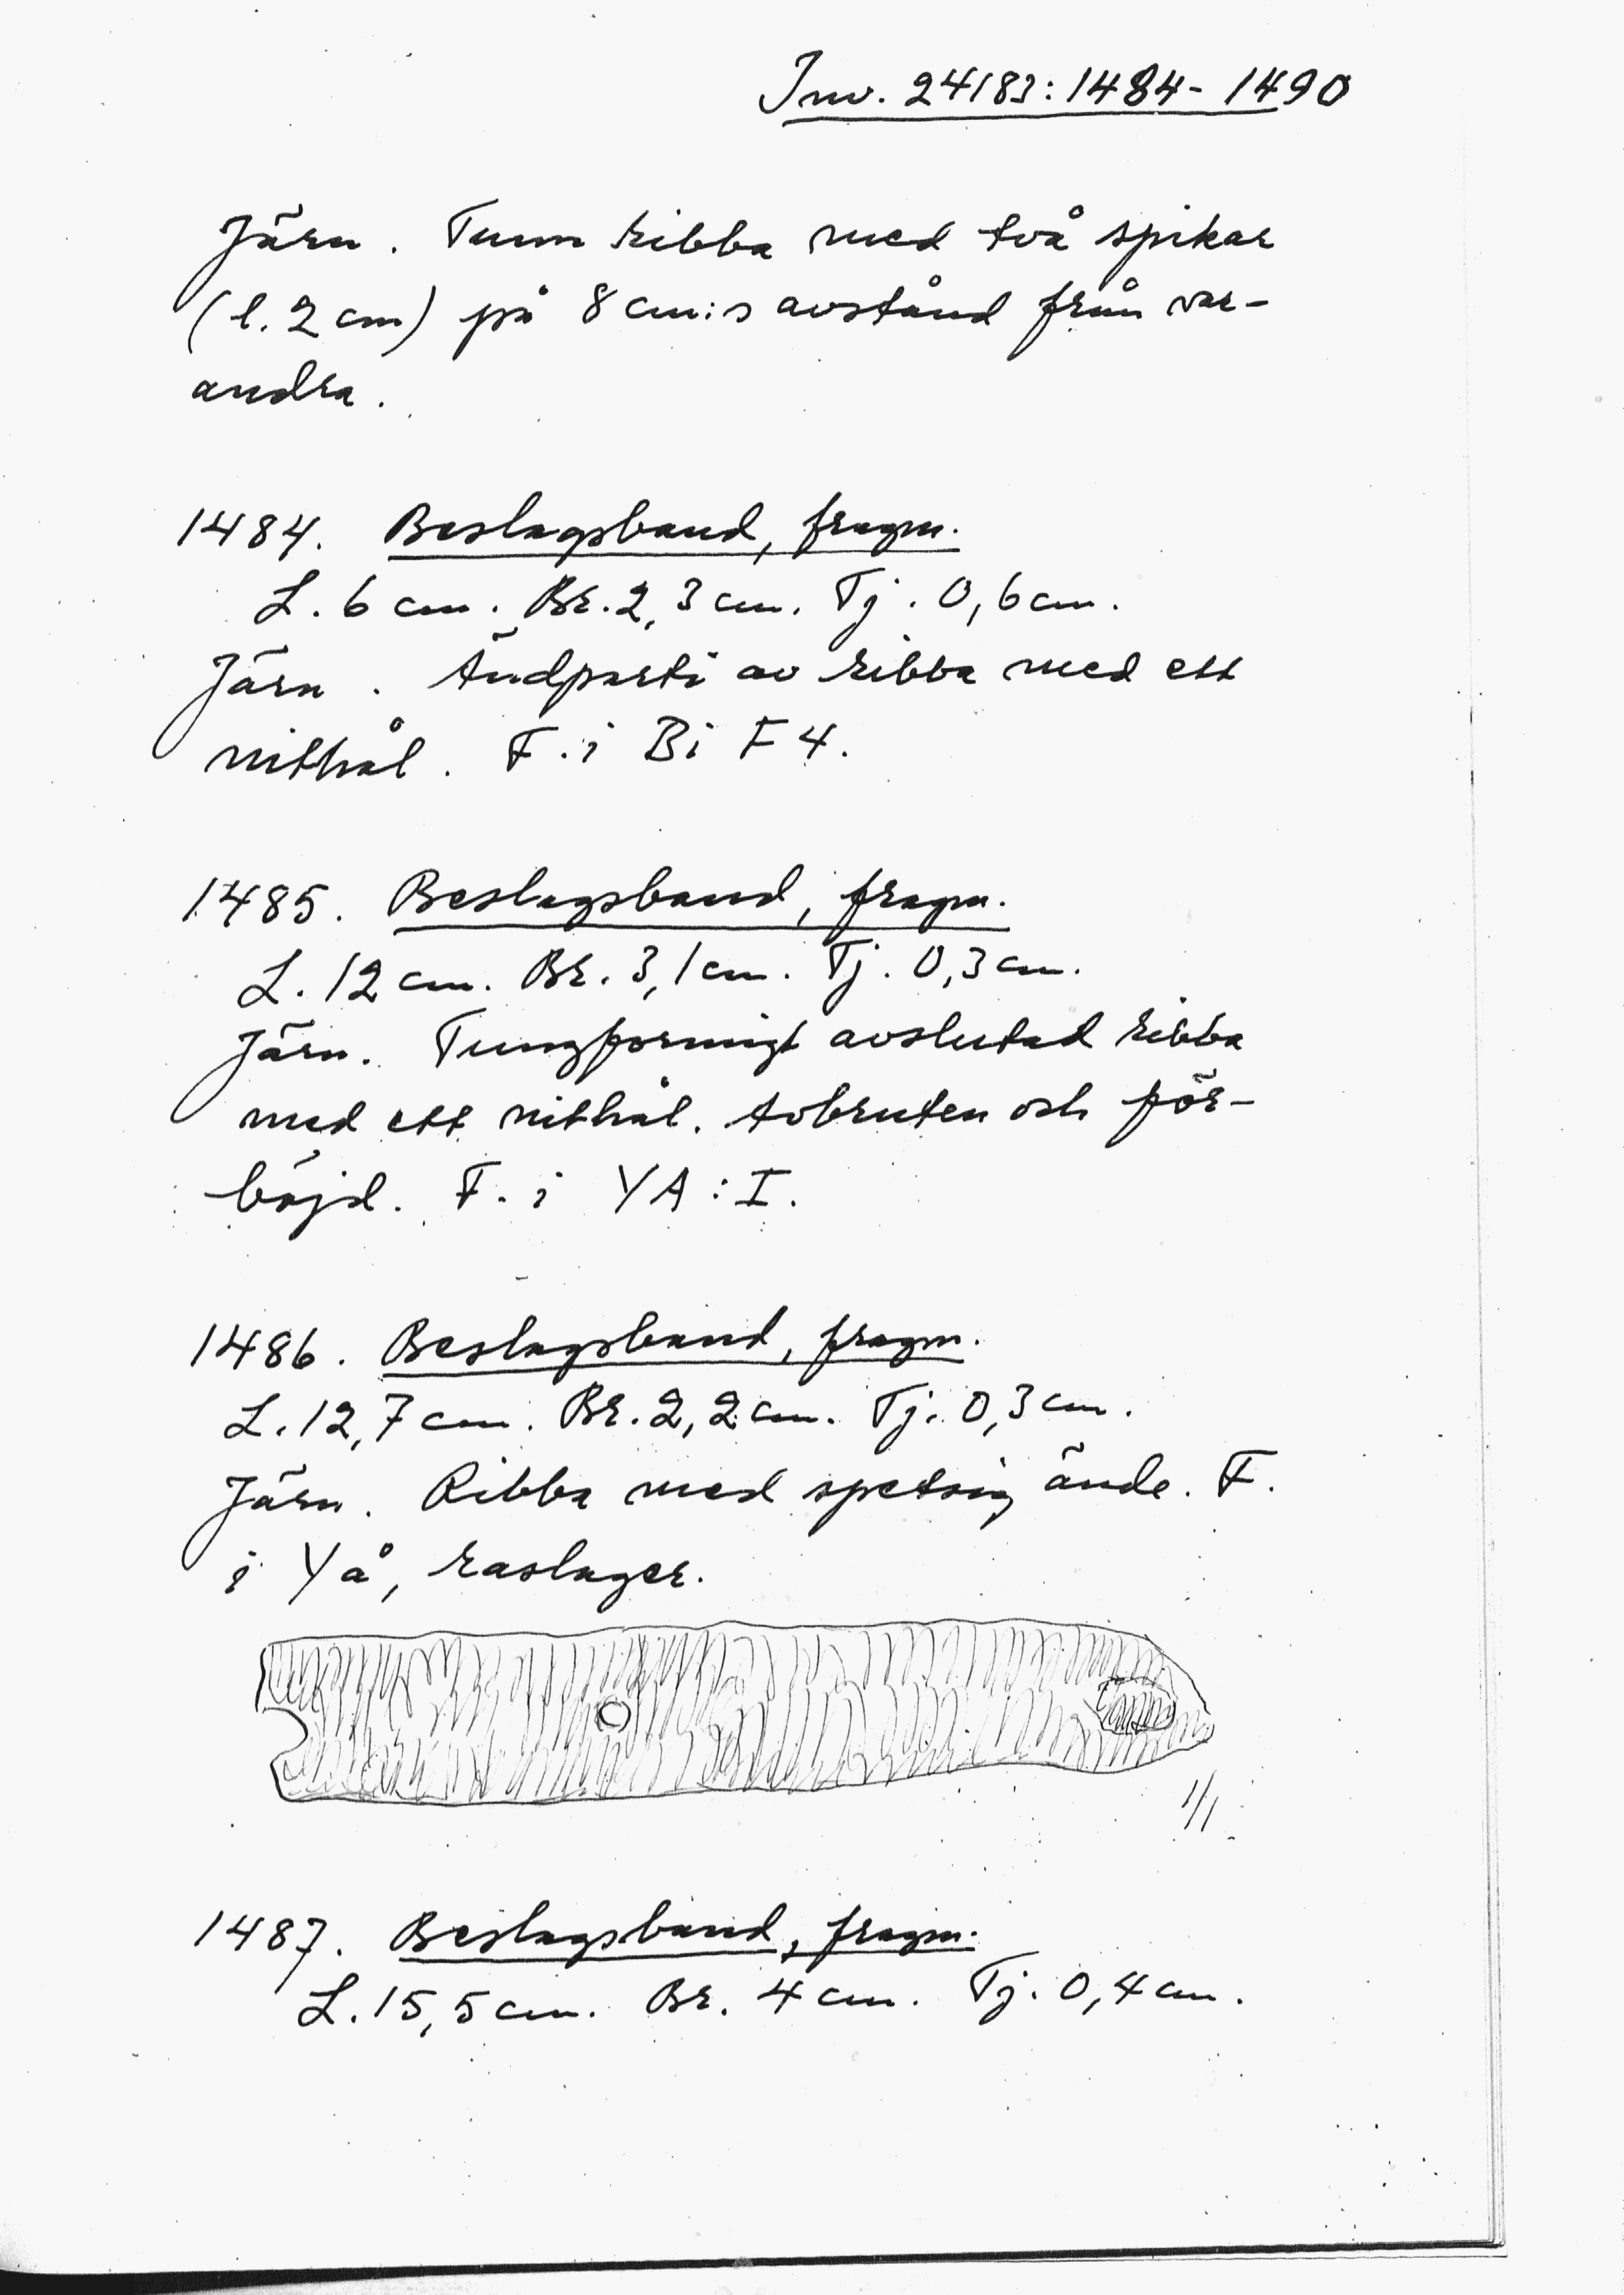 Inv. 24183:1484-1490
Järn. Tunn ribba med två spikar
(l. 2 cm) på 8 cm:s avstånd från var-
andra.
1484. Beslagsband, fragm.
L. 6 cm. Br. 2,3 cm. Tj. 0,6 cm.
Järn. Ändparti av ribba med ett
nithål. F. i Bi F4.
1485. Beslagsband, fragm.
L. 12 cm. Br. 3,1 cm. Tj. 0,3 cm.
Järn. Tungformigt avslutad ribba
med ett nithål. Avbruten och för-
böjd. F. i YA:I.
1486. Beslagsband, fragm.
L. 12,7 cm. Br. 2,2 cm. Tj. 0,3 cm.
Järn. Ribba med spetsig ände. F.
i Yå, raslager.
1/1
1487. Beslagsband, fragm.
L. 15,5 cm. Br. 4 cm. Tj. 0,4 cm.